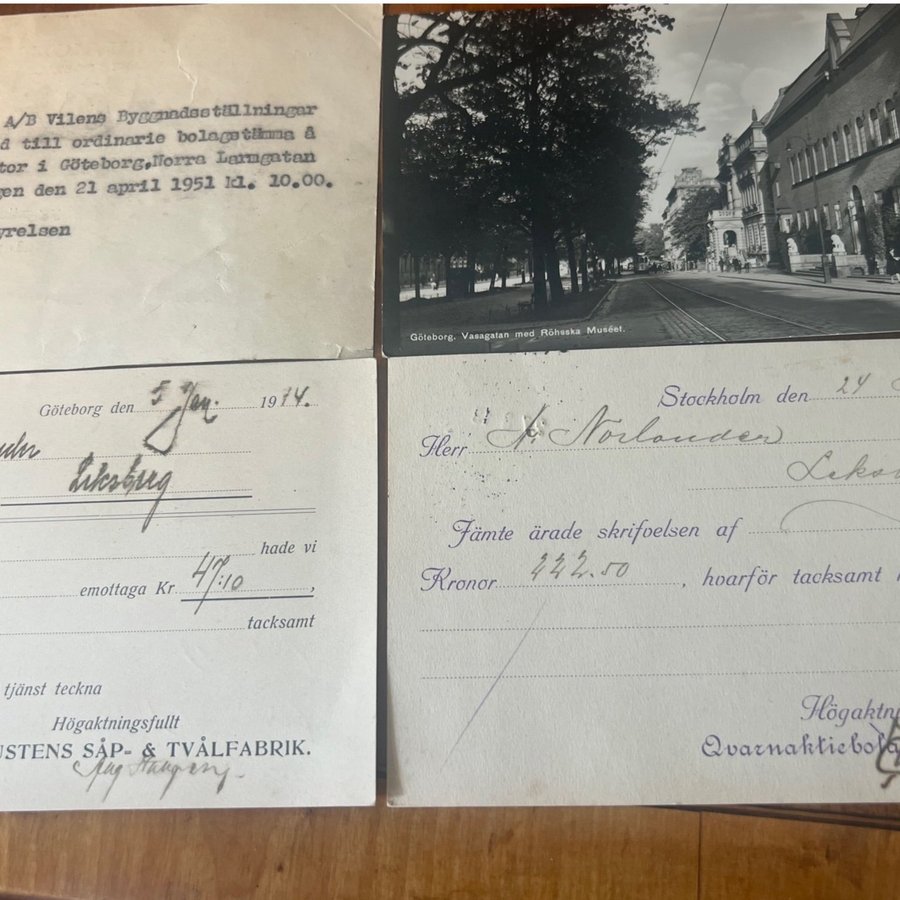 A/B Vilens Byggnadsställningar
d till ordinarie bolagstämma å
tor i Göteborg,Norra Larmgatan
gen den 21 april 1951 kl. 10.00.
yrelsen
Göteborg. Vasagatan med Röhsska Muséet.
Göteborg den 5 Jan. 1914.
Leksberg
hade vi
emottaga Kr 47:10,
tacksamt
tjänst teckna
Högaktningsfullt
USTENS SÅP- & TVÅLFABRIK.
Stockholm den 24
Herr A. Norlander
Leksb
Jämte ärade skrifvelsen af
Kronor 222.50, hvarför tacksamt
Högaktn
Qvarnaktiebol